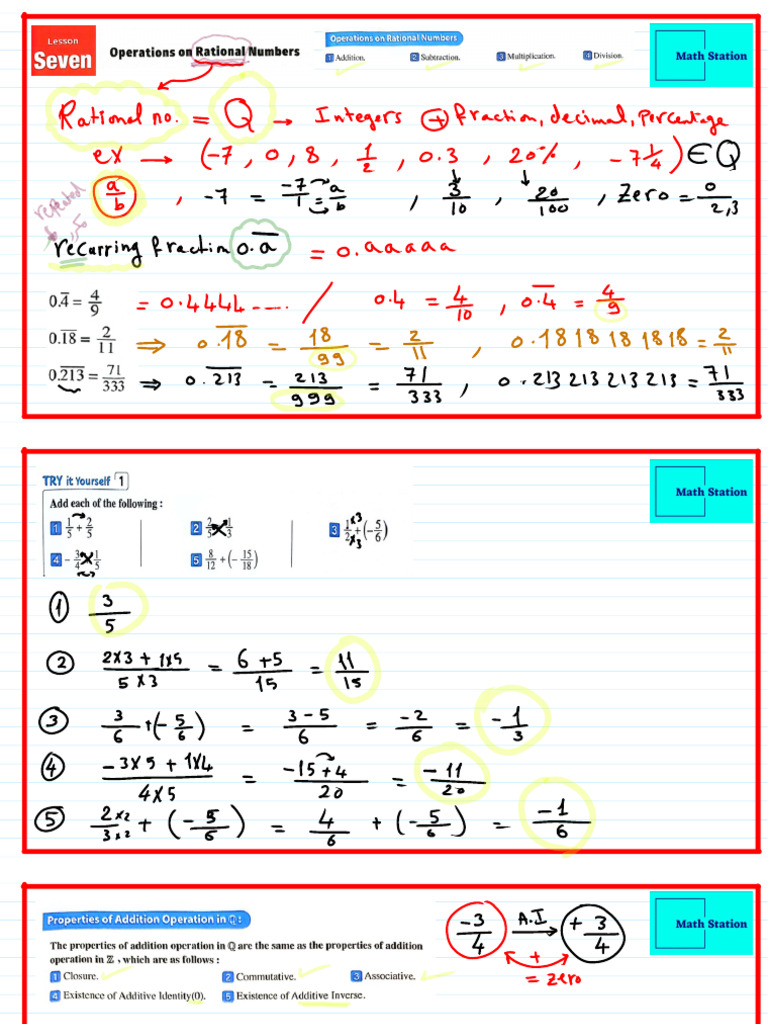 Lesson
Seven
Operations on Rational Numbers
Operations on Rational Numbers
1 Addition. 2 Subtraction. 3 Multiplication. 4 Division.
Math Station
Rational no. = Q → Integers + fraction, decimal, percentage
ex → (-7, 0, 8, 1/2, 0.3, 20%, -7 1/4) ∈ Q
a/b, -7 = -7/1 = a/b, 3/10, 20/100, Zero = 0/2,3
repeated
recurring fraction 0.a̅ = 0.aaaaa
0.4̅ = 4/9 = 0.4444---- / 0.4 = 4/10, 0.4̅ = 4/9
0.1̅8̅ = 2/11 ⇒ 0.1̅8̅ = 18/99 = 2/11, 0.1818181818 = 2/11
0.2̅1̅3̅ = 71/333 ⇒ 0.2̅1̅3̅ = 213/999 = 71/333, 0.213213213213 = 71/333
TRY it Yourself 1
Math Station
Add each of the following :
1 1/5 + 2/5 2 2/5 + 1/3 3 1/2 + (-5/6)
×3 ×3
4 - 3/4 + 1/5 5 8/12 + (- 15/18)
① 3/5
② 2×3 + 1×5 / 5×3 = 6+5 / 15 = 11/15
③ 3/6 + (-5/6) = 3-5 / 6 = -2/6 = -1/3
④ -3×5 + 1×4 / 4×5 = -15+4 / 20 = -11/20
⑤ 2×2 / 3×2 + (-5/6) = 4/6 + (-5/6) = -1/6
Properties of Addition Operation in ℚ :
-3/4 A.I → + 3/4
Math Station
The properties of addition operation in ℚ are the same as the properties of addition
operation in ℤ , which are as follows :
+
= zero
1 Closure. 2 Commutative. 3 Associative.
4 Existence of Additive Identity(0). 5 Existence of Additive Inverse.